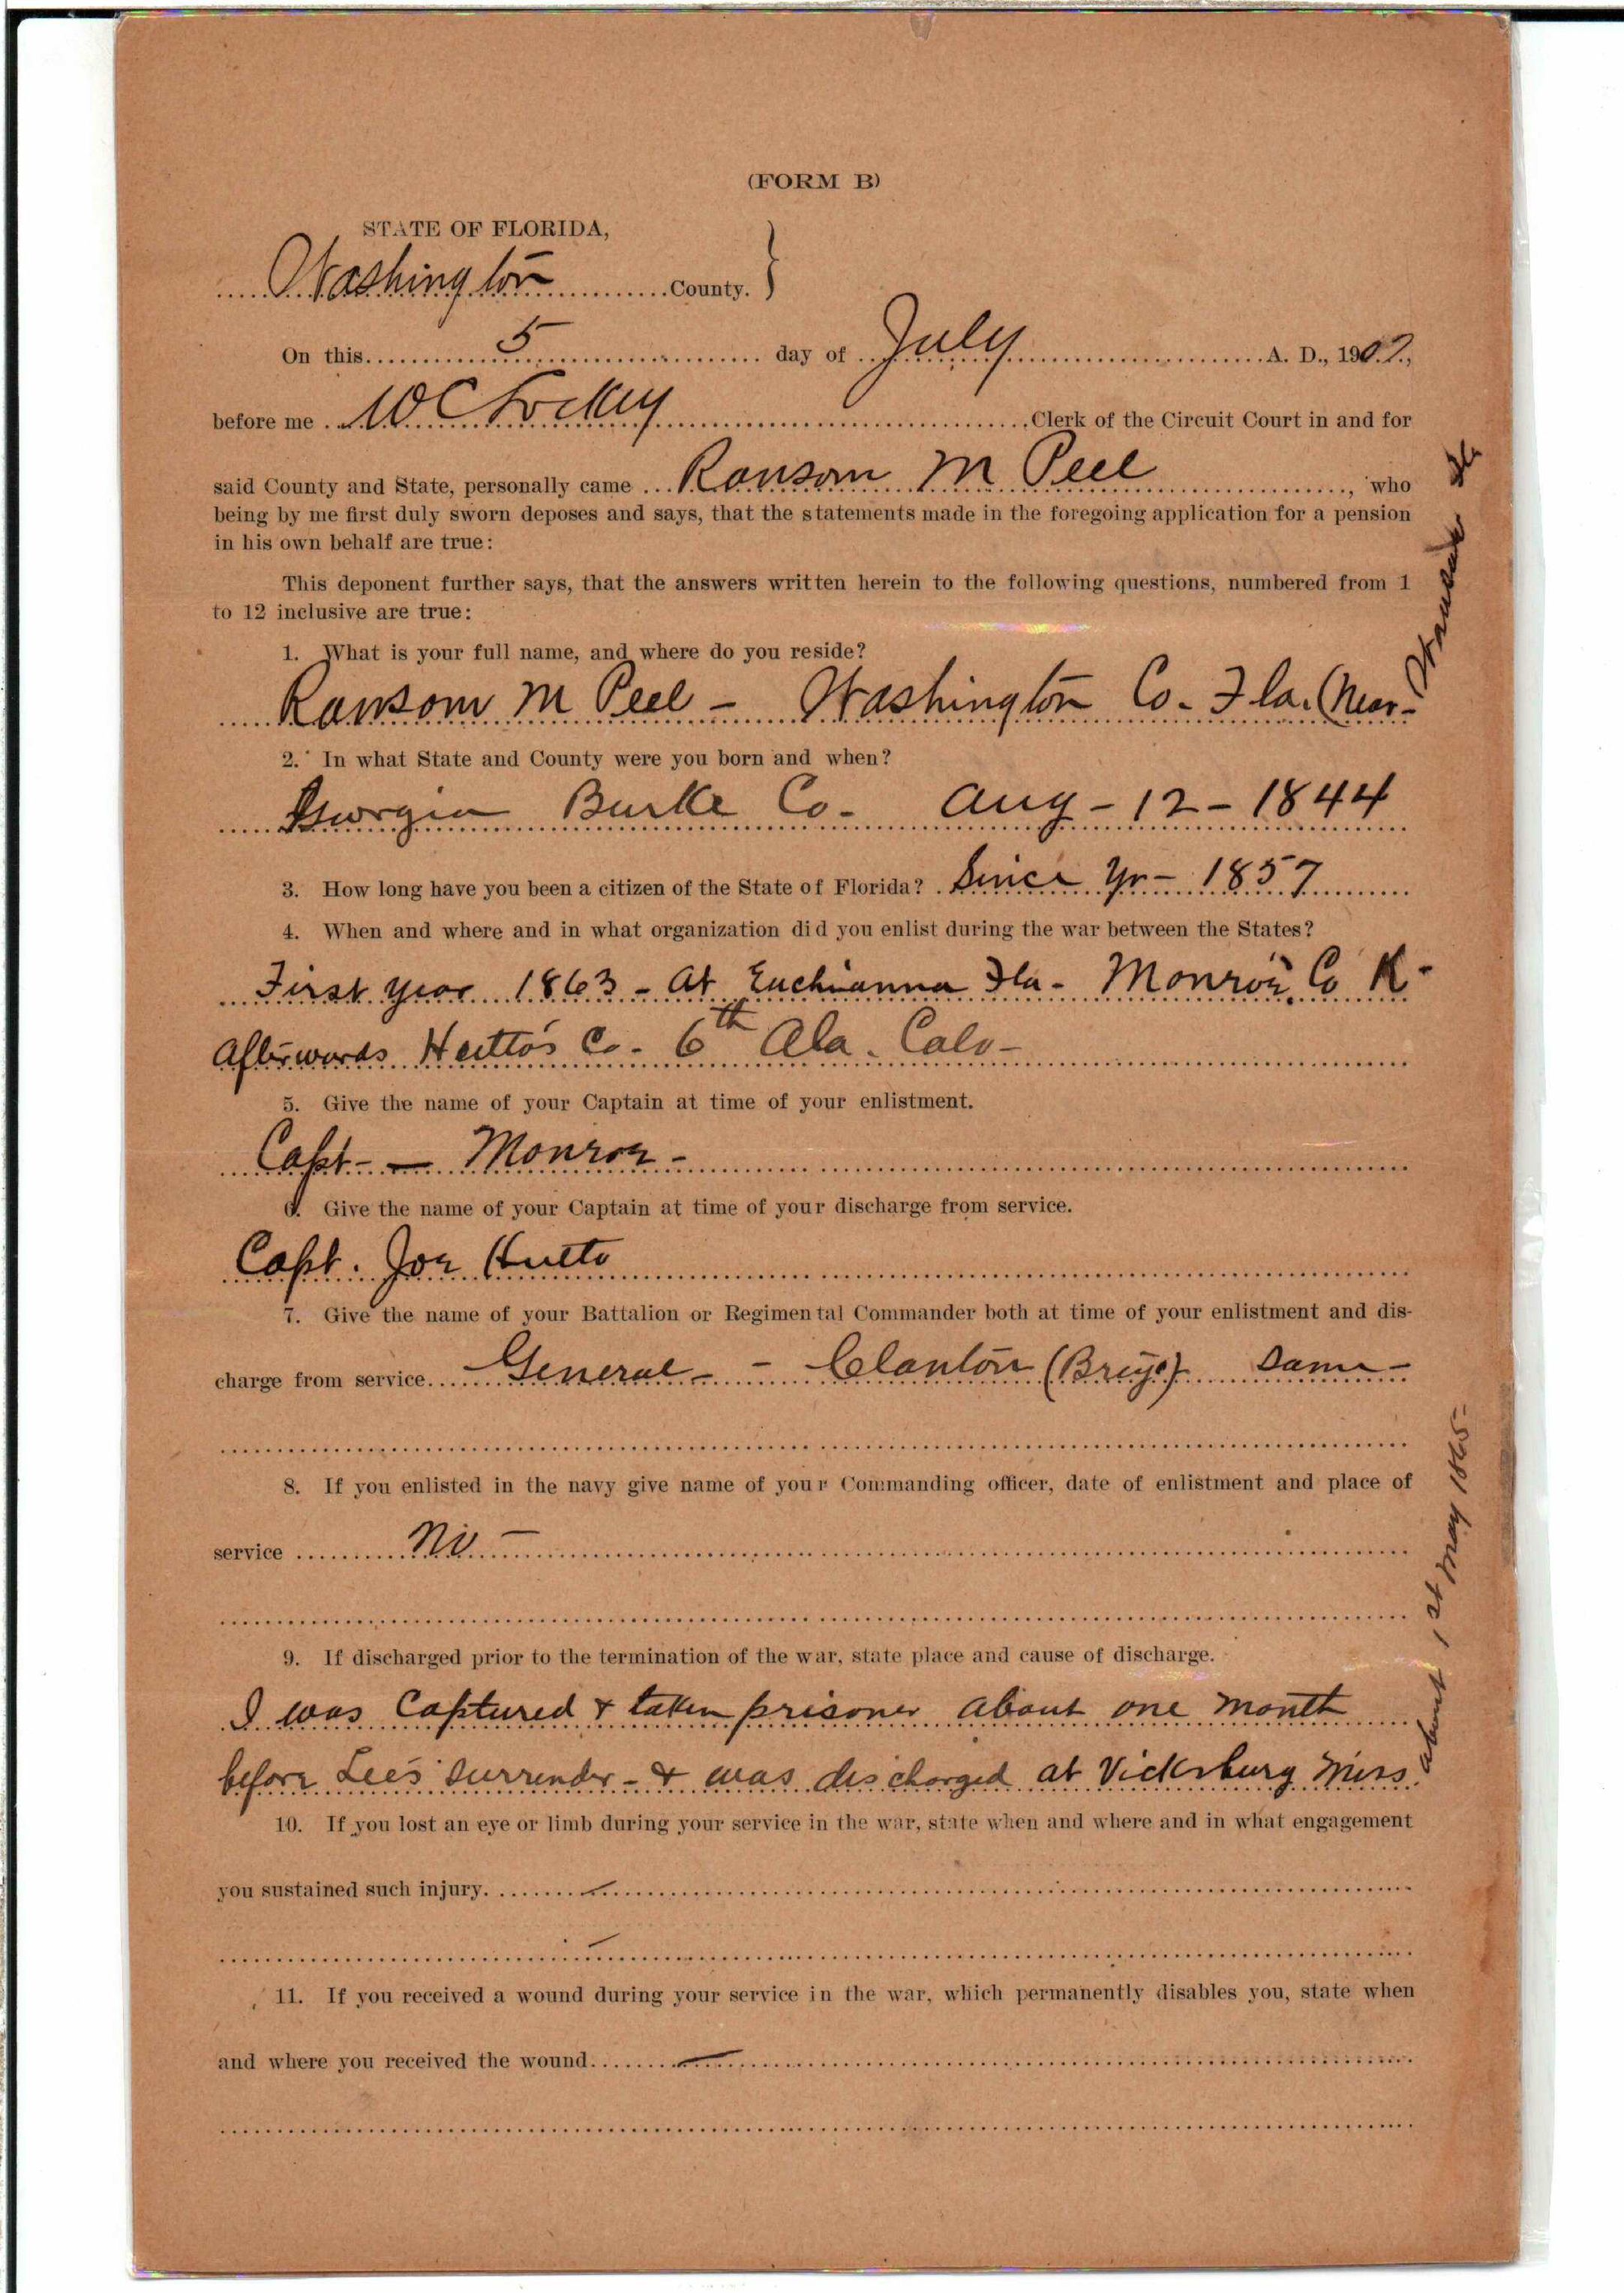 (FORM B)
STATE OF FLORIDA,
Washington County. }
On this 5 day of July A. D., 1907,
before me W C Lockey Clerk of the Circuit Court in and for
said County and State, personally came Ransom M Peel, who
being by me first duly sworn deposes and says, that the statements made in the foregoing application for a pension
in his own behalf are true:
This deponent further says, that the answers written herein to the following questions, numbered from 1
to 12 inclusive are true:
1. What is your full name, and where do you reside?
Ransom M Peel - Washington Co - Fla. (Near-
2. In what State and County were you born and when?
Georgia Burke Co - Aug - 12 - 1844
3. How long have you been a citizen of the State of Florida? Since Yr - 1857
4. When and where and in what organization did you enlist during the war between the States?
First year 1863 - At Euchianna Fla - Monroe Co K -
Afterwards Hutto's Co - 6th Ala. Calv -
5. Give the name of your Captain at time of your enlistment.
Capt - — Monroe -
6. Give the name of your Captain at time of your discharge from service.
Capt. Joe Hutto
7. Give the name of your Battalion or Regimental Commander both at time of your enlistment and dis-
charge from service. General - - Clanton (Brig.) Same -
8. If you enlisted in the navy give name of your Commanding officer, date of enlistment and place of
service No -
9. If discharged prior to the termination of the war, state place and cause of discharge.
I was Captured & taken prisoner about one month
before Lee's Surrender - & was discharged at Vicksburg Miss.
about 1st May 1865 -
10. If you lost an eye or limb during your service in the war, state when and where and in what engagement
you sustained such injury.
11. If you received a wound during your service in the war, which permanently disables you, state when
and where you received the wound. —